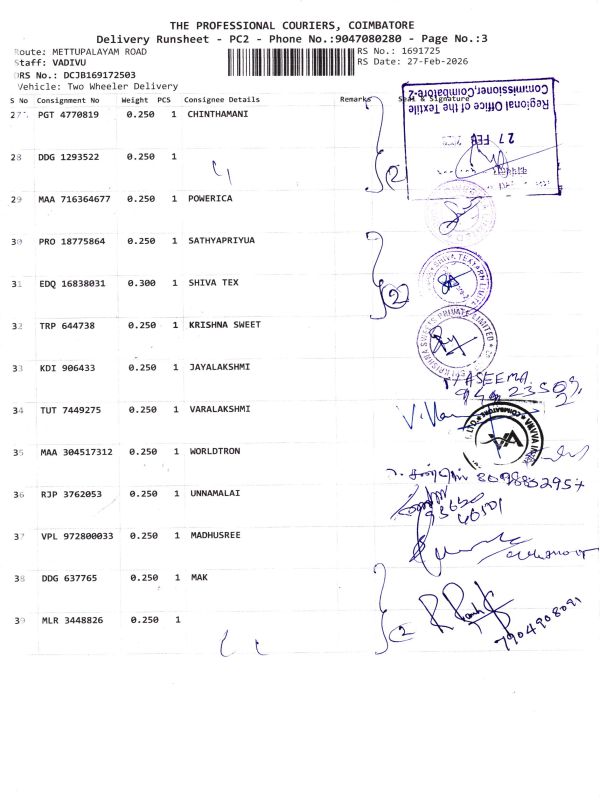 THE PROFESSIONAL COURIERS, COIMBATORE
Delivery Runsheet - PC2 - Phone No.:9047080280 - Page No.:3
Route: METTUPALAYAM ROAD RS No.: 1691725
Staff: VADIVU RS Date: 27-Feb-2026
DRS No.: DCJB169172503
Vehicle: Two Wheeler Delivery
S No Consignment No Weight PCS Consignee Details Remarks Seal & Signature
27 PGT 4770819 0.250 1 CHINTHAMANI
Regional Office of the Textile
Commissioner, Coimbatore-2
27 FEB
28 DDG 1293522 0.250 1
2
29 MAA 716364677 0.250 1 POWERICA
30 PRO 18775864 0.250 1 SATHYAPRIYUA
31 EDQ 16838031 0.300 1 SHIVA TEX
2
SHIVA TEXYARN LIMITED
32 TRP 644738 0.250 1 KRISHNA SWEET
SRI KRISHNA SWEETS PRIVATE LIMITED
33 KDI 906433 0.250 1 JAYALAKSHMI
34 TUT 7449275 0.250 1 VARALAKSHMI
35 MAA 304517312 0.250 1 WORLDTRON
36 RJP 3762053 0.250 1 UNNAMALAI
37 VPL 972800033 0.250 1 MADHUSREE
38 DDG 637765 0.250 1 MAK
39 MLR 3448826 0.250 1
2
7904908091